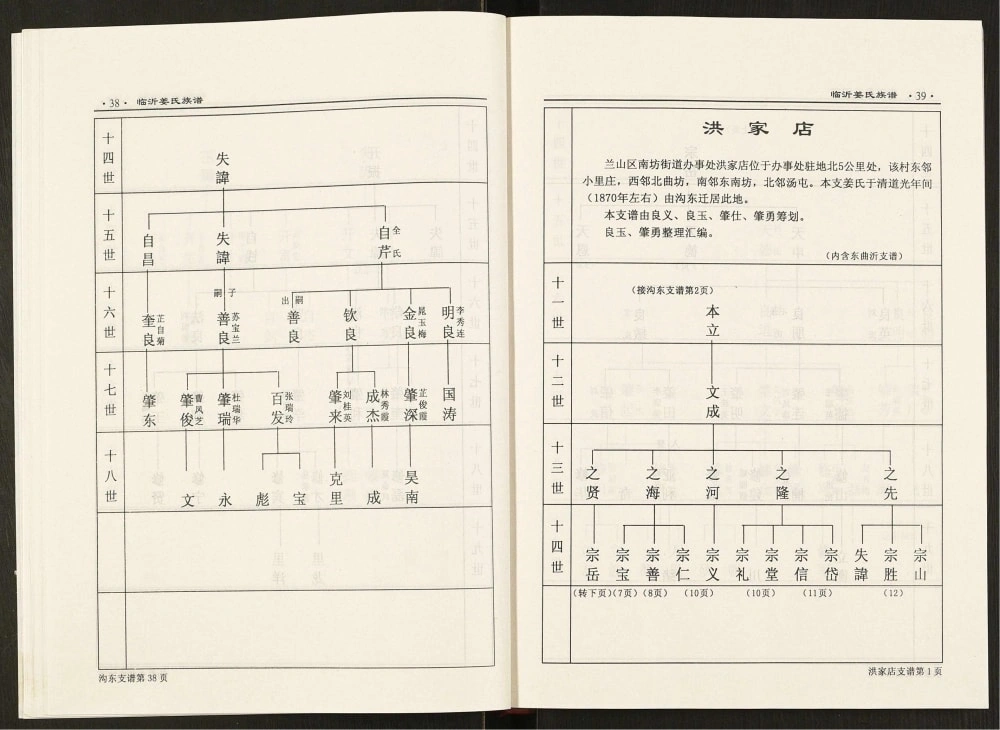 ·38· 临沂姜氏族谱
十四世
失諱
十五世
自昌
失諱
自芹
全氏
十六世
奎良
芷自菊
嗣子
善良
苏宝兰
出嗣
善良
钦良
金良
晁玉梅
明良
李秀连
十七世
肇东
肇俊
曹风芝
肇瑞
杜瑞华
百发
张瑞玲
肇来
刘桂英
成杰
林秀霞
肇深
芷俊霞
国涛
十八世
文
永
彪
宝
克里
成
昊南
沟东支谱第38页
临沂姜氏族谱 ·39·
洪家店
兰山区南坊街道办事处洪家店位于办事处驻地北5公里处，该村东邻
小里庄，西邻北曲坊，南邻东南坊，北邻汤屯。本支姜氏于清道光年间
（1870年左右）由沟东迁居此地。
本支谱由良义、良玉、肇仕、肇勇筹划。
良玉、肇勇整理汇编。
（内含东曲沂支谱）
十一世
（接沟东支谱第2页）
本立
十二世
文成
十三世
之贤
之海
之河
之隆
之先
十四世
宗岳
宗宝
宗善
宗仁
宗义
宗礼
宗堂
宗信
宗岱
失諱
宗胜
宗山
（转下页）（7页）（8页） （10页） （10页） （11页） （12）
洪家店支谱第1页